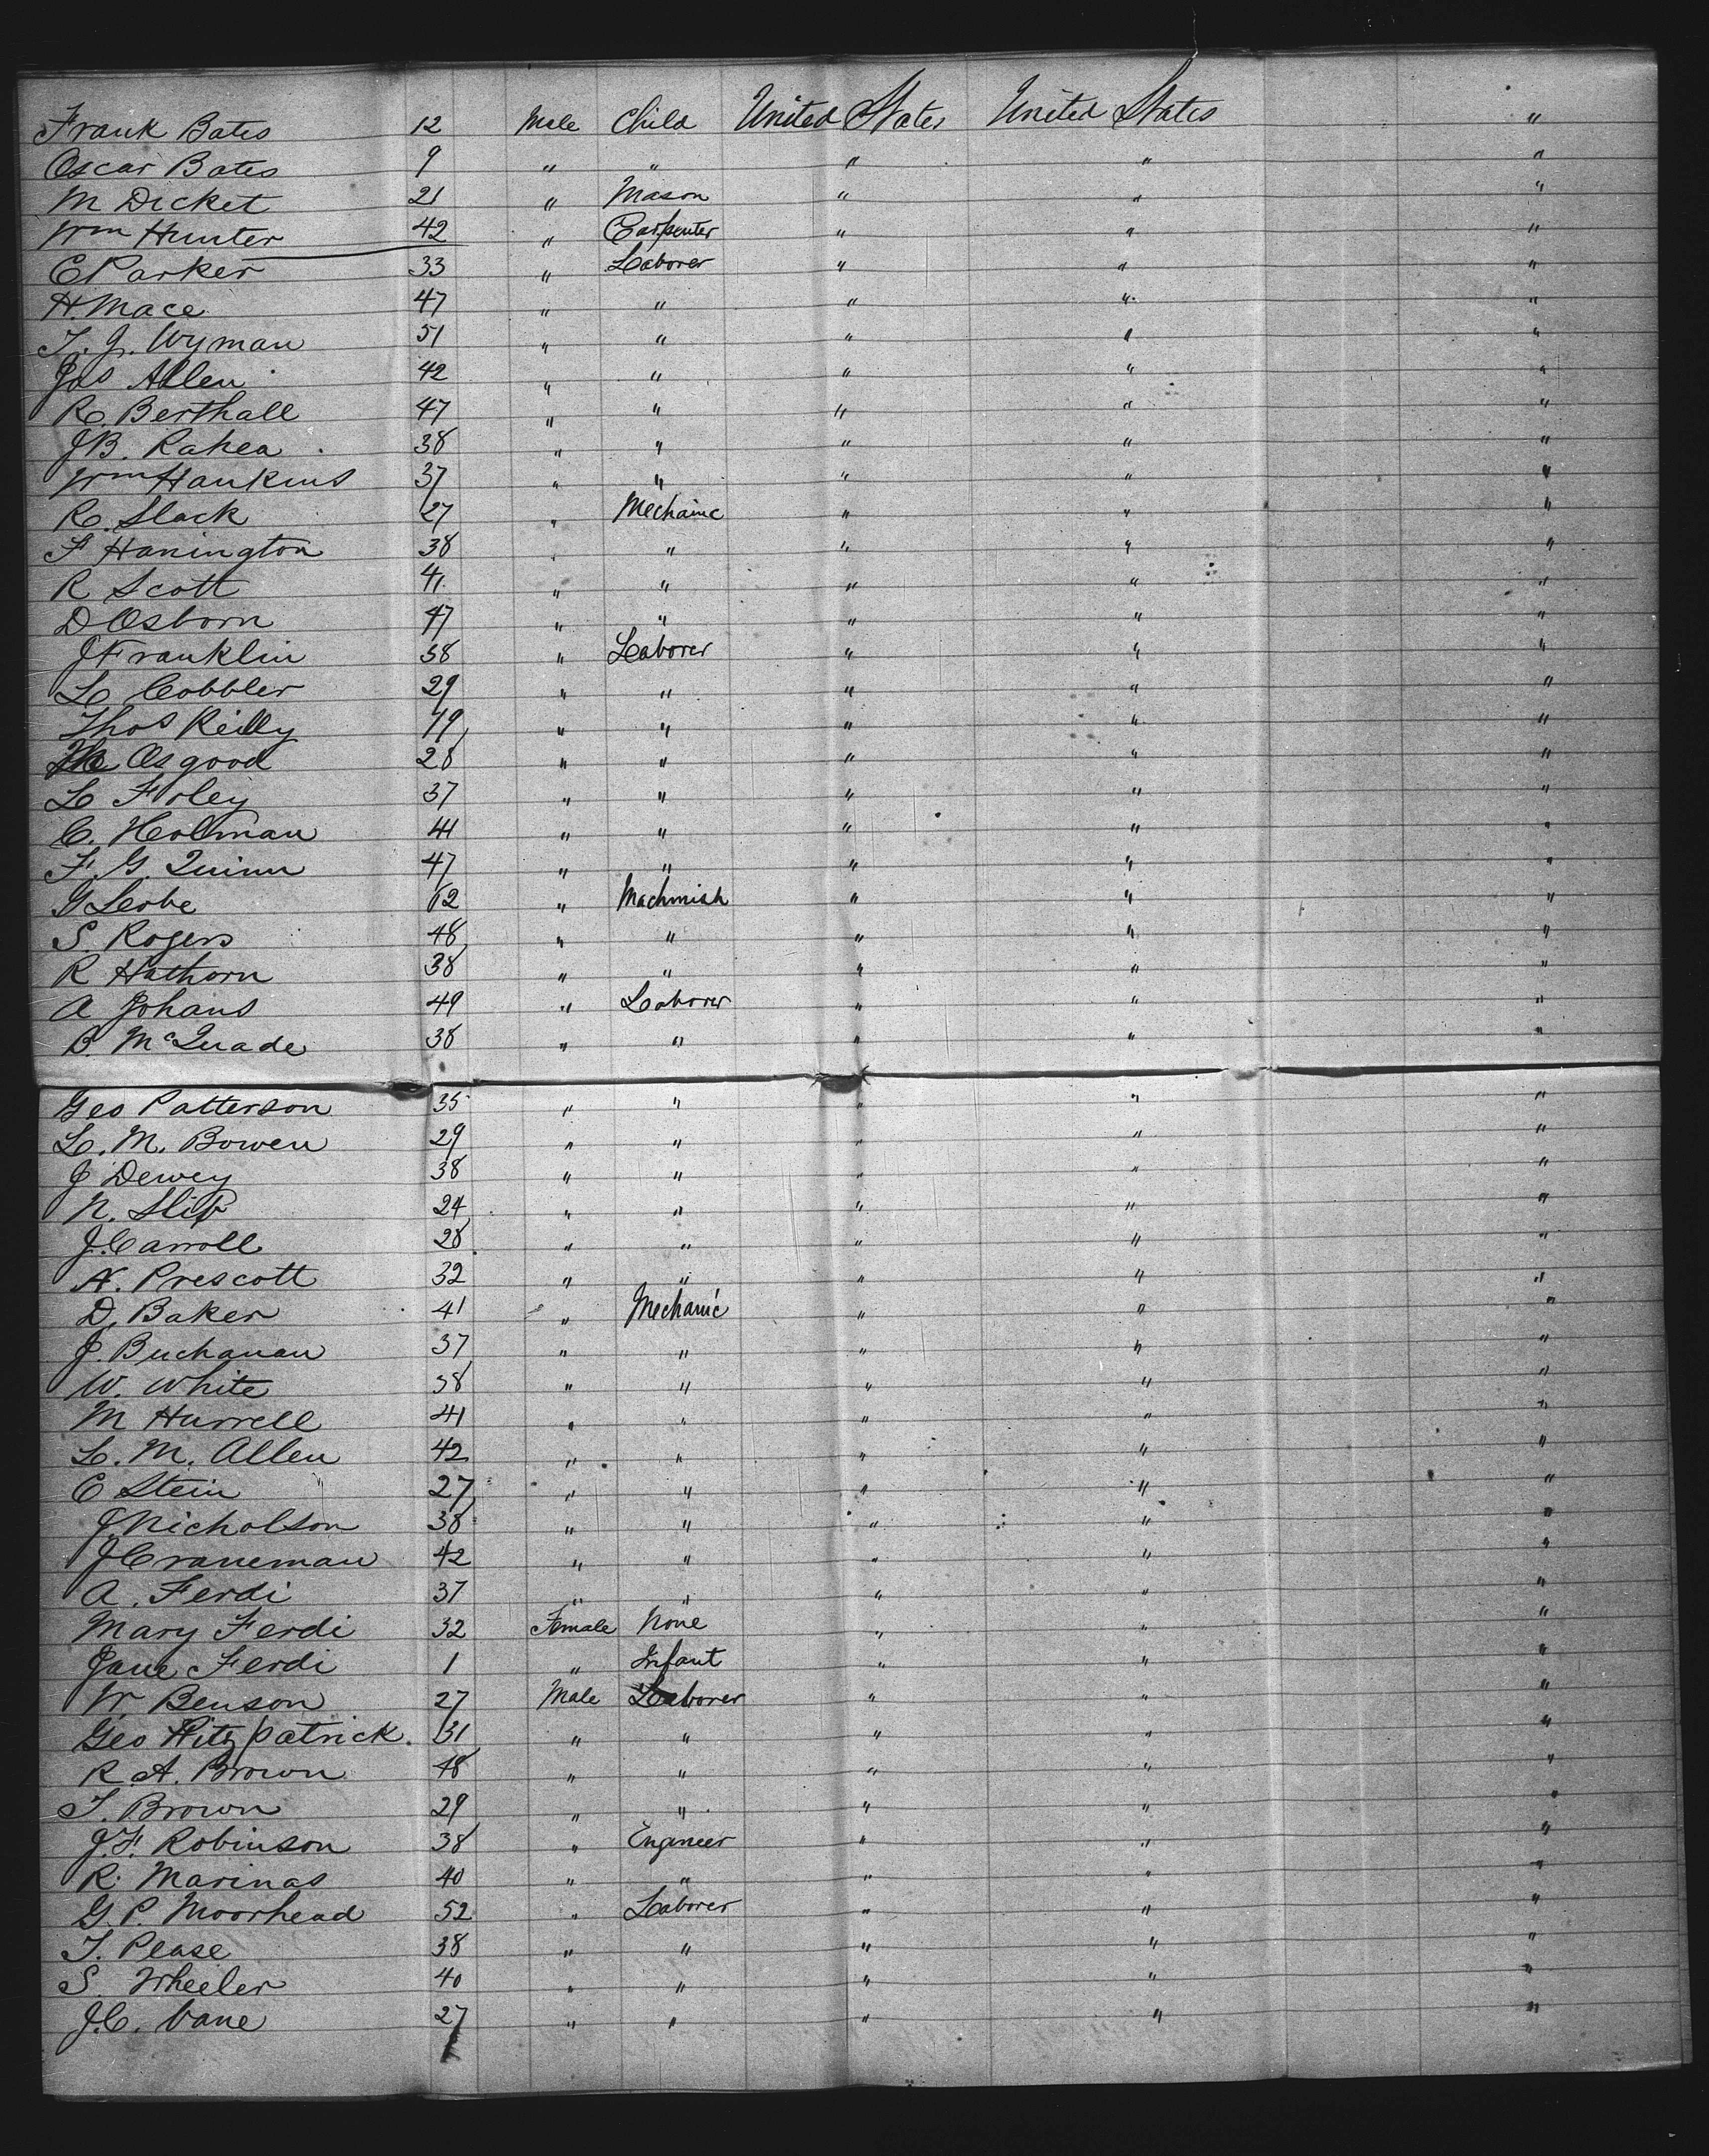 Frank Bates 12 Male Child United States United States "
Oscar Bates 9 " " " " "
M Dicket 21 " Mason " " "
Wm Hunter 42 " Carpenter " " "
C Parker 33 " Laborer " " "
H. Mace 47 " " " " "
T. J. Wyman 51 " " " " "
Jas Allen 42 " " " " "
R. Berthall 47 " " " " "
J B. Rahea 38 " " " " "
Wm Hankins 37 " " " " "
R. Slack 27 " Mechanic " " "
F Hanington 38 " " " " "
R Scott 41 " " " " "
D Osborn 47 " " " " "
J Franklin 38 " Laborer " " "
L Cobbler 29 " " " " "
Thos Reilly 49 " " " " "
Osgood 28 " " " " "
L Foley 37 " " " " "
C. Holman 41 " " " " "
F. G. Quinn 47 " " " " "
G Leobe 62 " Machinist " " "
S. Rogers 48 " " " " "
R Hathorn 38 " " " " "
A Johans 49 " Laborer " " "
B. McQuade 38 " " " " "
Geo Patterson 35 " " " " "
L. M. Bowen 29 " " " " "
J Dewey 38 " " " " "
N. Slip 24 " " " " "
J. Carroll 28 " " " " "
N. Prescott 32 " " " " "
D. Baker 41 " Mechanic " " "
J. Buchanan 37 " " " " "
W. White 38 " " " " "
M Hurrell 41 " " " " "
L. M. Allen 42 " " " " "
C Stein 27 " " " " "
J. Nicholson 38 " " " " "
J Craneman 42 " " " " "
A. Ferdi 37 " " " " "
Mary Ferdi 32 Female None " " "
Jane Ferdi 1 " Infant " " "
W. Benson 27 Male Laborer " " "
Geo Fitzpatrick. 31 " " " " "
R. A. Brown 48 " " " " "
T. Brown 29 " " " " "
J. F. Robinson 38 " Engineer " " "
R. Marinas 40 " " " " "
G. P. Moorhead 52 " Laborer " " "
T. Pease 38 " " " " "
S. Wheeler 40 " " " " "
J. C. Vane 27 " " " " "